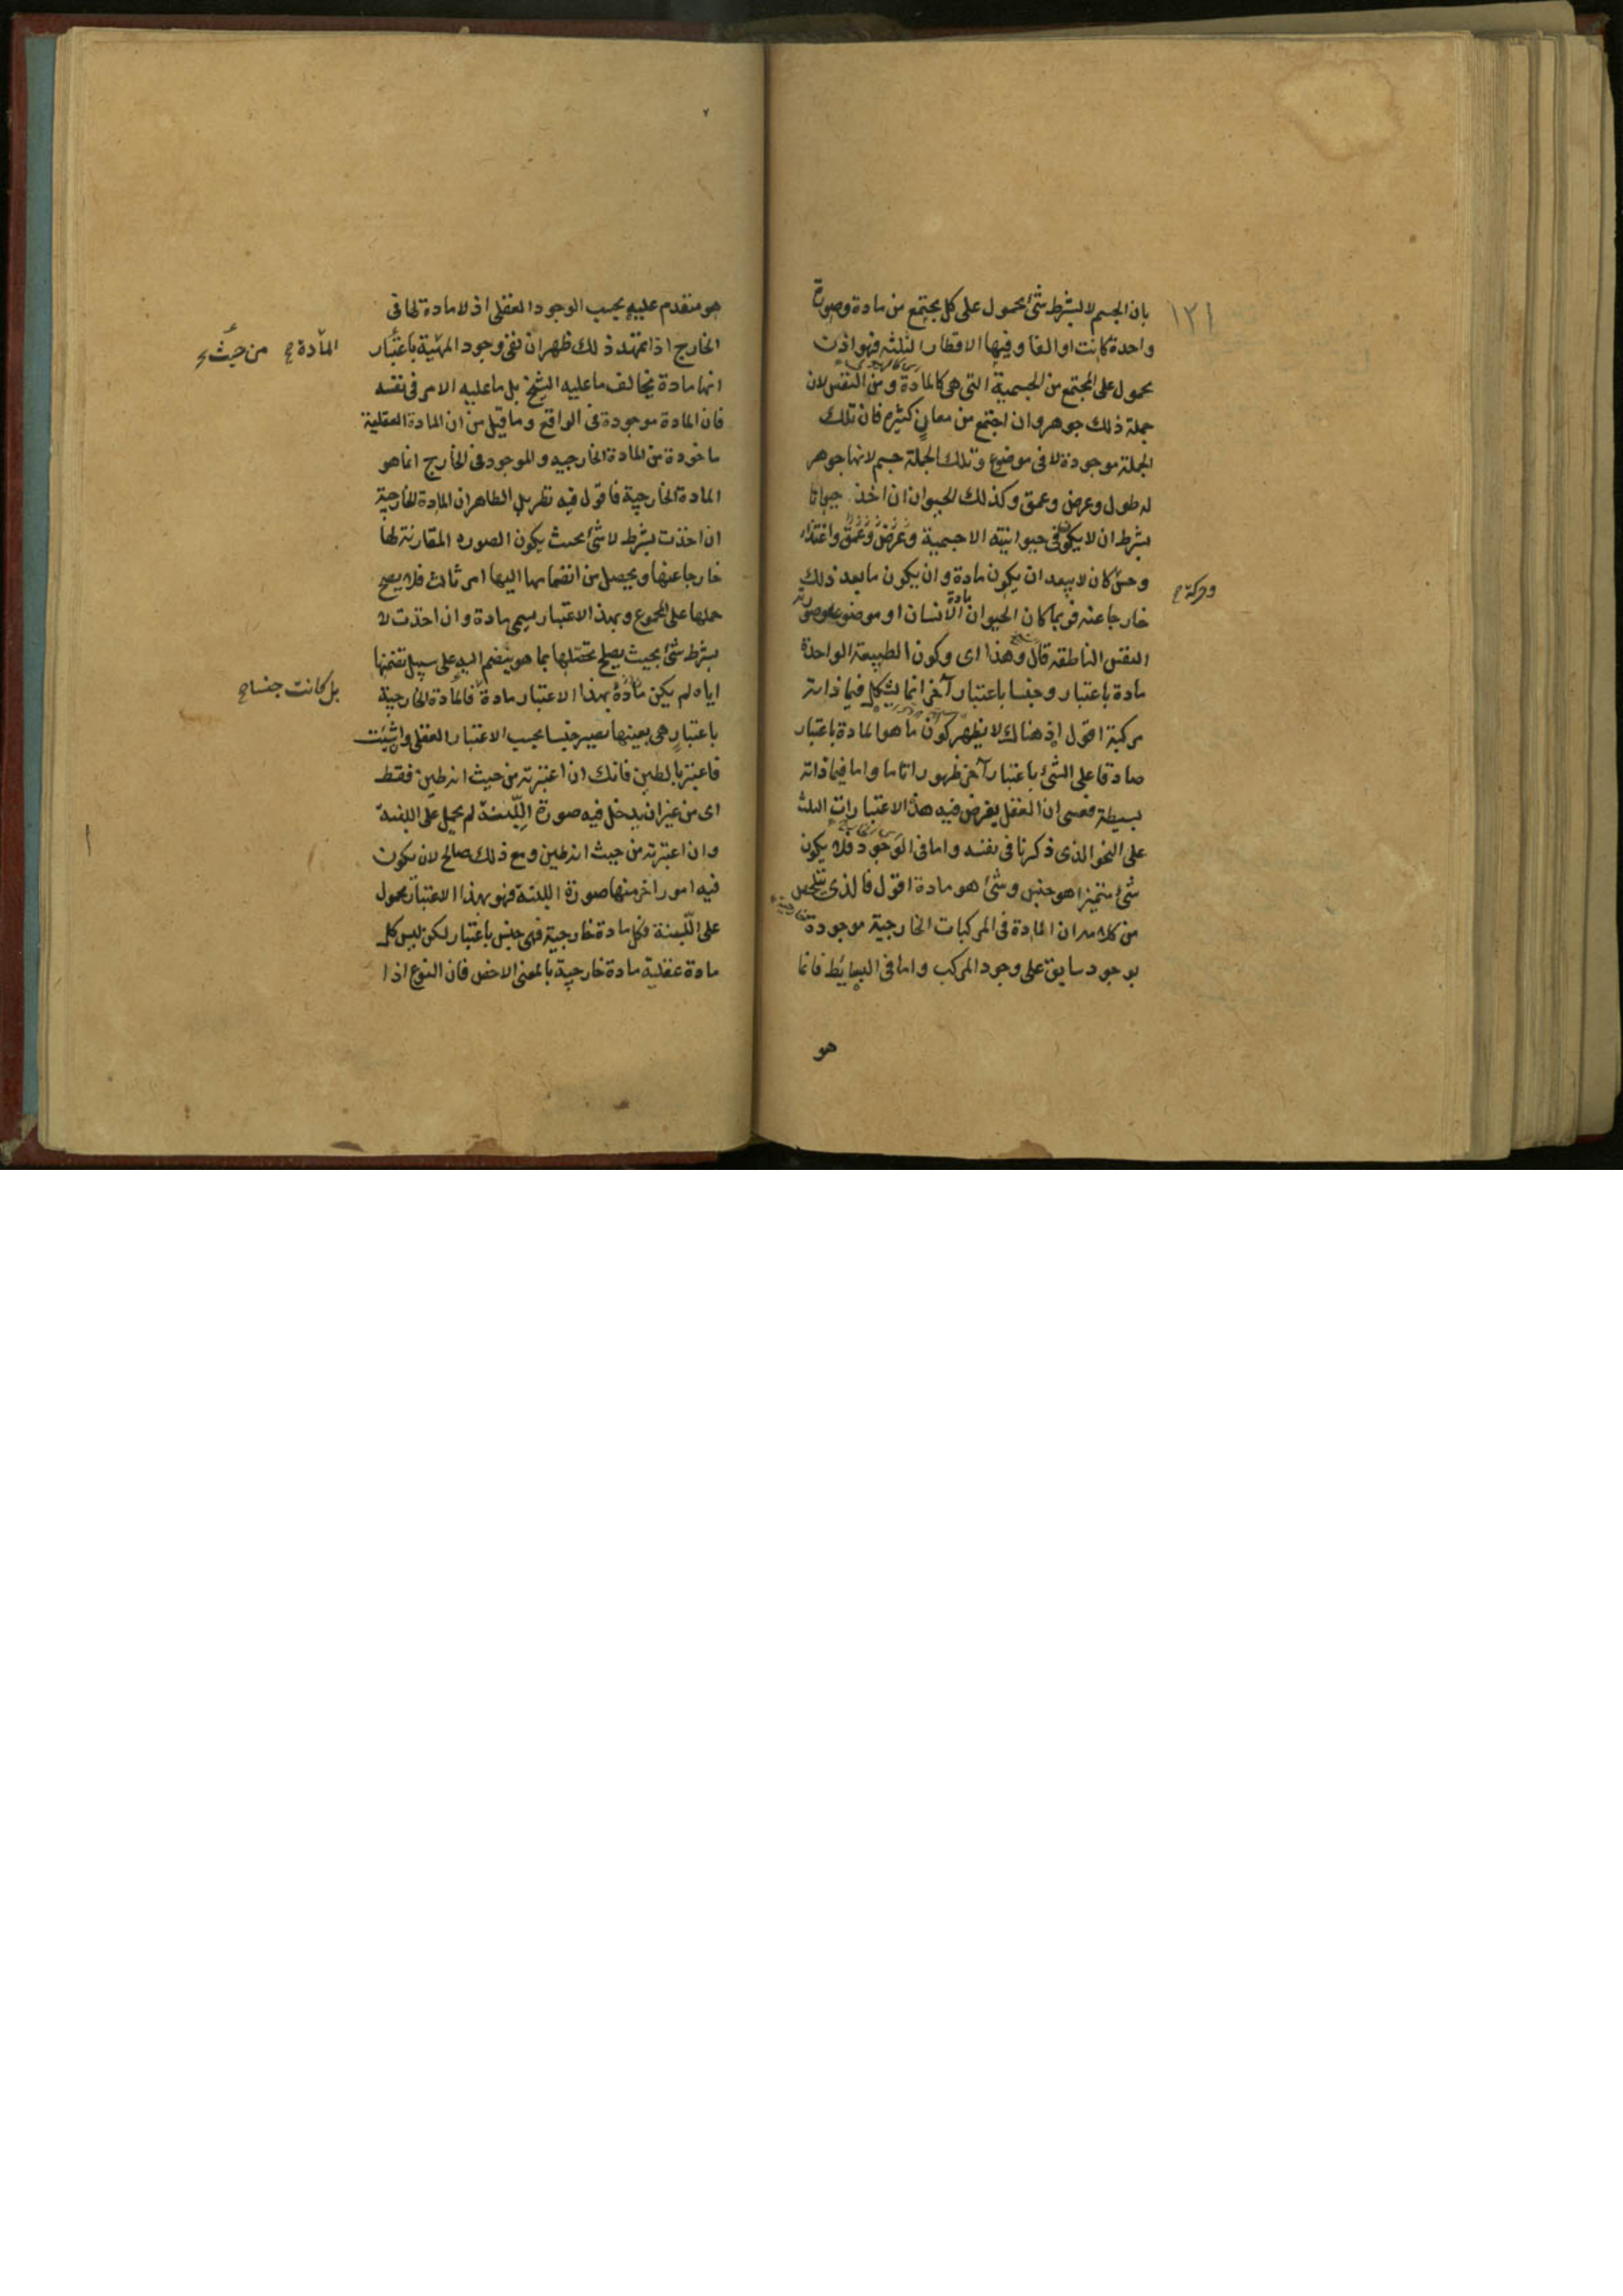 ١٢١
بان الجسم لا بشرط شئ محمول على كل مجتمع من مادة وصورة
واحدة كانت او الفا وفيها الاقطار الثلثه فهو اذن
محمول على المجتمع من الجسمية التى هى كالمادة ومن النفس لان
جملة ذلك جوهر وان اجتمع من معانٍ كثيره فان تلك
الجملة موجودة لا فى موضوع وتلك الجملة جسم لانها جوهر
له طول وعرض وعمق وكذلك الحيوان ان اخذ حيوانا
بشرط ان لا يكون فى حيوانيته الا جسمية وعرض وعمق واغتذاء
وحسّ كان لا يبعد ان يكون مادة وان يكون ما بعد ذلك
وحركة صح
خارجا عنه فربما كان الحيوان مادة الانسان او موضوعه وصورته
النفس الناطقه قال وهذا اى وكون الطبيعة الواحدة
مادة باعتبار وجنسا باعتبار آخر انما يشكل فيما ذاته
مركبة اقول اذ هنالك لا يظهر كون ما هو المادة باعتبار
صادقا على الشئ باعتبار آخر ظهورا تاما واما فيما ذاته
بسيطة فعسى ان العقل يفرض فيه هذه الاعتبارات الثلث
على النحو الذى ذكرنا فى نفسه واما فى الوجود فلا يكون
شئ متميز اهو جنس وشئ هو مادة اقول فالذى تلخص
من كلامه ان المادة فى المركبات الخارجية موجودة
بوجود سابق على وجود المركب واما فى البسائط فانما
هو
هو متقدم عليه بحسب الوجود العقلى اذ لا مادة لها فى
الخارج اذا تمهد ذلك ظهر ان نفى وجود المهيّة باعتبار
المادة صح من حيث
انها مادة يخالف ما عليه الشيخ بل ما عليه الامر فى نفسه
فان المادة موجودة فى الواقع وما قيل من ان المادة العقلية
ماخودة من المادة الخارجيه والموجود فى الخارج انما هو
المادة الخارجية فاقول فيه نظر بل الظاهر ان المادة الخارجية
ان اخذت بشرط لا شئ بحيث يكون الصوره المقارنة لها
خارجا عنها ويحصل من انضمامها اليها امر ثالث فلا يصح
حملها على المجموع وبهذا الاعتبار يسمى مادة وان اخذت لا
بشرط شئ بحيث يصلح تحصلها بما هو ينضم اليه على سبيل تضمنها
اياه لم يكن مادة بهذا الاعتبار مادة فالمادة الخارجية
بل كانت جنسا صح
باعتبار هى بعينها تصير جنسا بحسب الاعتبار العقلى وان شئت
فاعتبر بالطين فانك ان اعتبرته من حيث انه طين فقط
اى من غير ان يدخل فيه صورة اللّبنة لم يحمل على اللبنة
وان اعتبرته من حيث انه طين ومع ذلك صالح لان يكون
فيه امور اخر منها صورة اللبنة فهو بهذا الاعتبار محمول
على اللّبنة فكل مادة خارجية فهى جنس باعتبار لكن ليس كل
مادة عقلية مادة خارجية بالمعنى الاخص فان النوع اذا